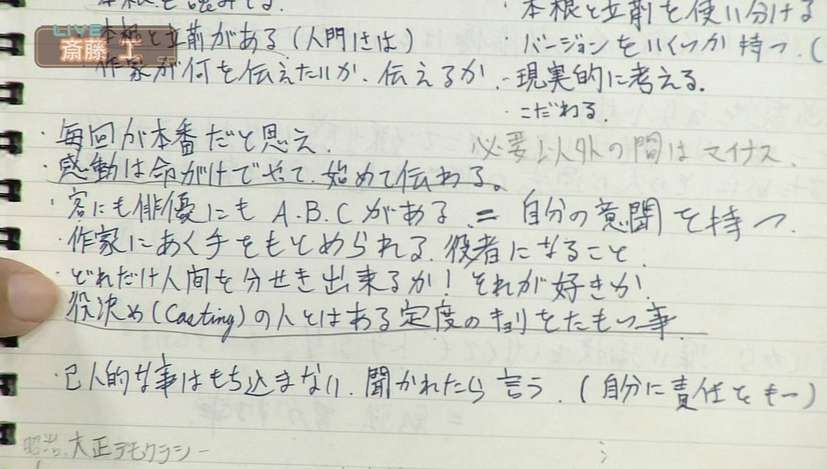 ・本根と立前を使い分ける
LIVE
斎藤 工
本根と立前がある(人門きは)
・バージョンをいくつか持つ.(
作家が何を伝えたいか、伝えるか.
・現実的に考える.
・こだわる.
・毎回が本番だと思え.
必要以外の間はマイナス.
・感動は命がけでやって、始めて伝わる。
・客にも俳優にも A.B.Cがある = 自分の意聞を持つ.
・作家にあく手をもとめられる役者になること.
・どれだけ人間を分せき出来るか!それが好きか.
・役決め(Casting)の人とはある定度のキョリをたもつ事.
・己人的な事はもち込まない.聞かれたら言う.(自分に責任をもつ)
大正デモクラシー